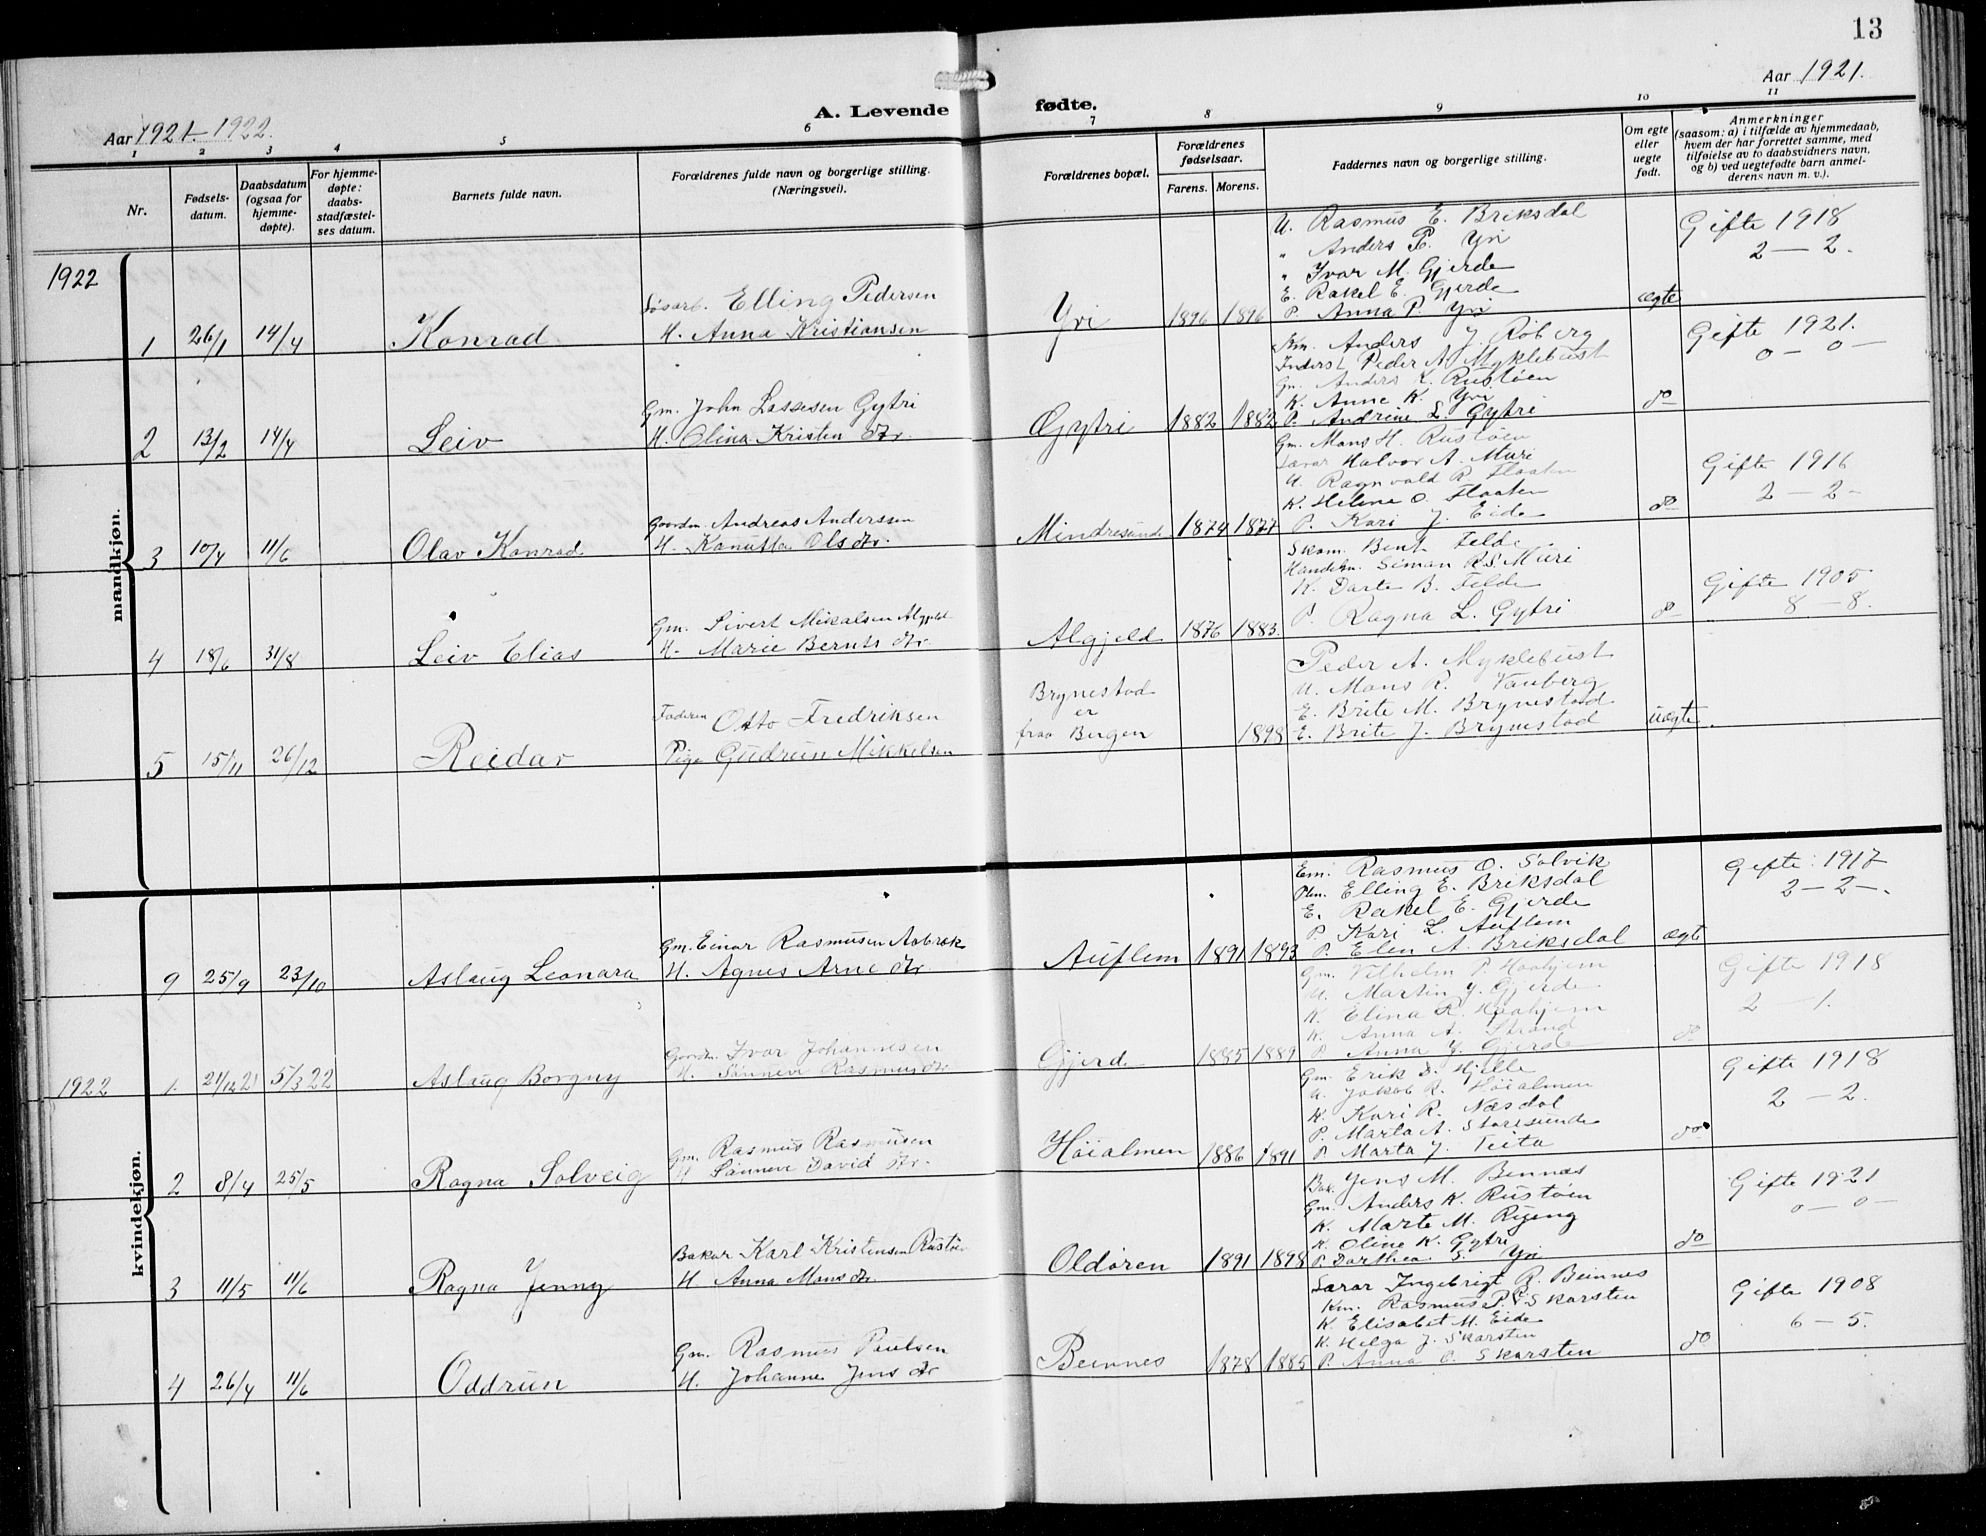 13
Aar 1921-1922.
A. Levende fødte.
Aar 1921.
1 2 3 4 5 6 7 8 9 10 11
Nr.
Fødsels-
datum.
Daabsdatum
(ogsaa for
hjemme-
døpte).
For hjemme-
døpte:
daabs-
stadfæstel-
ses datum.
Barnets fulde navn.
Forældrenes fulde navn og borgerlige stilling.
(Næringsvei).
Forældrenes bopæl.
Forældrenes
fødselsaar.
Farens. Morens.
Faddernes navn og borgerlige stilling.
Om egte
eller
uegte
født.
Anmerkninger
(saasom: a) i tilfælde av hjemmedaab,
hvem der har forrettet samme, med
tilføielse av to daabsvidners navn,
og b) ved uegtefødte barn anmel-
derens navn m. v.).
mandkjøn.
1922
1 26/1 14/4 Konrad
Elling Pedersen
H. Anna Kristiansen
Yri 1896 1896
U. Rasmus E. Briksdal
" Anders P. Yri
" Ivar M. Gjerde
E. Rakel E. Gjerde
P. Anna P. Yri
ægte
Gifte 1918
2 - 2.
2 13/2 14/4 Leiv
Gm. John Lassesen Gytri
H. Olina Kristen dtr.
Gytri 1882 1882
Km. Anders J. Roberg
Peder A. Myklebust
Gm. Anders K. Rustøen
K. Anne K. Yri
P. Andrine L. Gytri
do
Gifte 1921.
0 - 0 -
3 10/4 11/6 Olav Konrad
Gaardm. Andreas Anderssen
H. Kanutta Ols dtr.
Mindresunde 1874 1877
Gm. Mons H. Rustøen
Lærar Halvor A. Muri
U. Ragnvald R. Flaaten
K. Helene O. Flaaten
P. Kari J. Eide
do
Gifte 1916
2 - 2 -
4 18/6 31/8 Leiv Elias
Gm. Sivert Mikalsen Algjeld
H. Marie Bernts dtr.
Algjeld 1876 1883.
Skom. Bent Felde
Handelsm. Simon R.S. Muri
K. Darte B. Felde
P. Ragna L. Gytri
do
Gifte 1905
8 - 8.
5 15/11 26/12 Reidar
Faderen Otto Fredriksen
Pige Gudrun Mikkelsen
Brynestad
er
fraa Bergen
1898
Peder A. Myklebust
U. Mons R. Vanberg
E. Brite M. Brynestad
E. Brite J. Brynestad
uægte.
kvindekjøn.
9 25/9 23/10 Aslaug Leonara
Gm. Einar Rasmusen Aabrek
H. Agnes Arne dtr
Auflem 1891 1893
Em. Rasmus O. Solvik
Elling E. Briksdal
E. Rakel E. Gjerde
P. Kari L. Auflem
P. Elen A. Briksdal
ægte
Gifte 1917
2 - 2 -.
1922
1. 21/12 21 5/3 22 Aslaug Borgny
Gaardm. Ivar Johannesen
H. Sønneve Rasmus dtr
Gjerd 1885 1889
Gm. Vilhelm P. Haahjem
U. Martin J. Gjerde
K. Elina R. Haahjem
K. Anna A. Strand
P. Anna J. Gjerde
do
Gifte 1918
2 - 1.
2 8/4 25/5 Ragna Solveig
Gm. Rasmus Rasmusen
H Sønneve David dtr.
Høialmen 1886 1891
Gm. Erik D. Hjelle
U. Jakob R. Høialmen
K. Kari R. Næsdal
P. Marta A. Storesunde
P. Marta J. Teita
do
Gifte 1918
2 - 2.
3 11/5 11/6 Ragna Jenny
Bakar Karl Kristensen Rustøen
H Anna Mons dtr
Oldøren 1891 1898
Bak. Jens M. Bennæs
Gm. Anders K. Rustøen
K. Marte M. Rygg
K. Oline K. Gytri
P. Dorthea S. Yri
do
Gifte 1921
0 - 0 -
4 26/4 11/6 Oddrun
Gm. Rasmus Paulsen
H. Johanne Jens dtr
Beinnes 1878 1885
Lærar Ingebrigt R. Beinnes
Km. Rasmus P. Skarsten
K. Elisabet M. Eide
K. Helga J. Skarsten
P. Anna O. Skarsten
do
Gifte 1908
6 - 5.